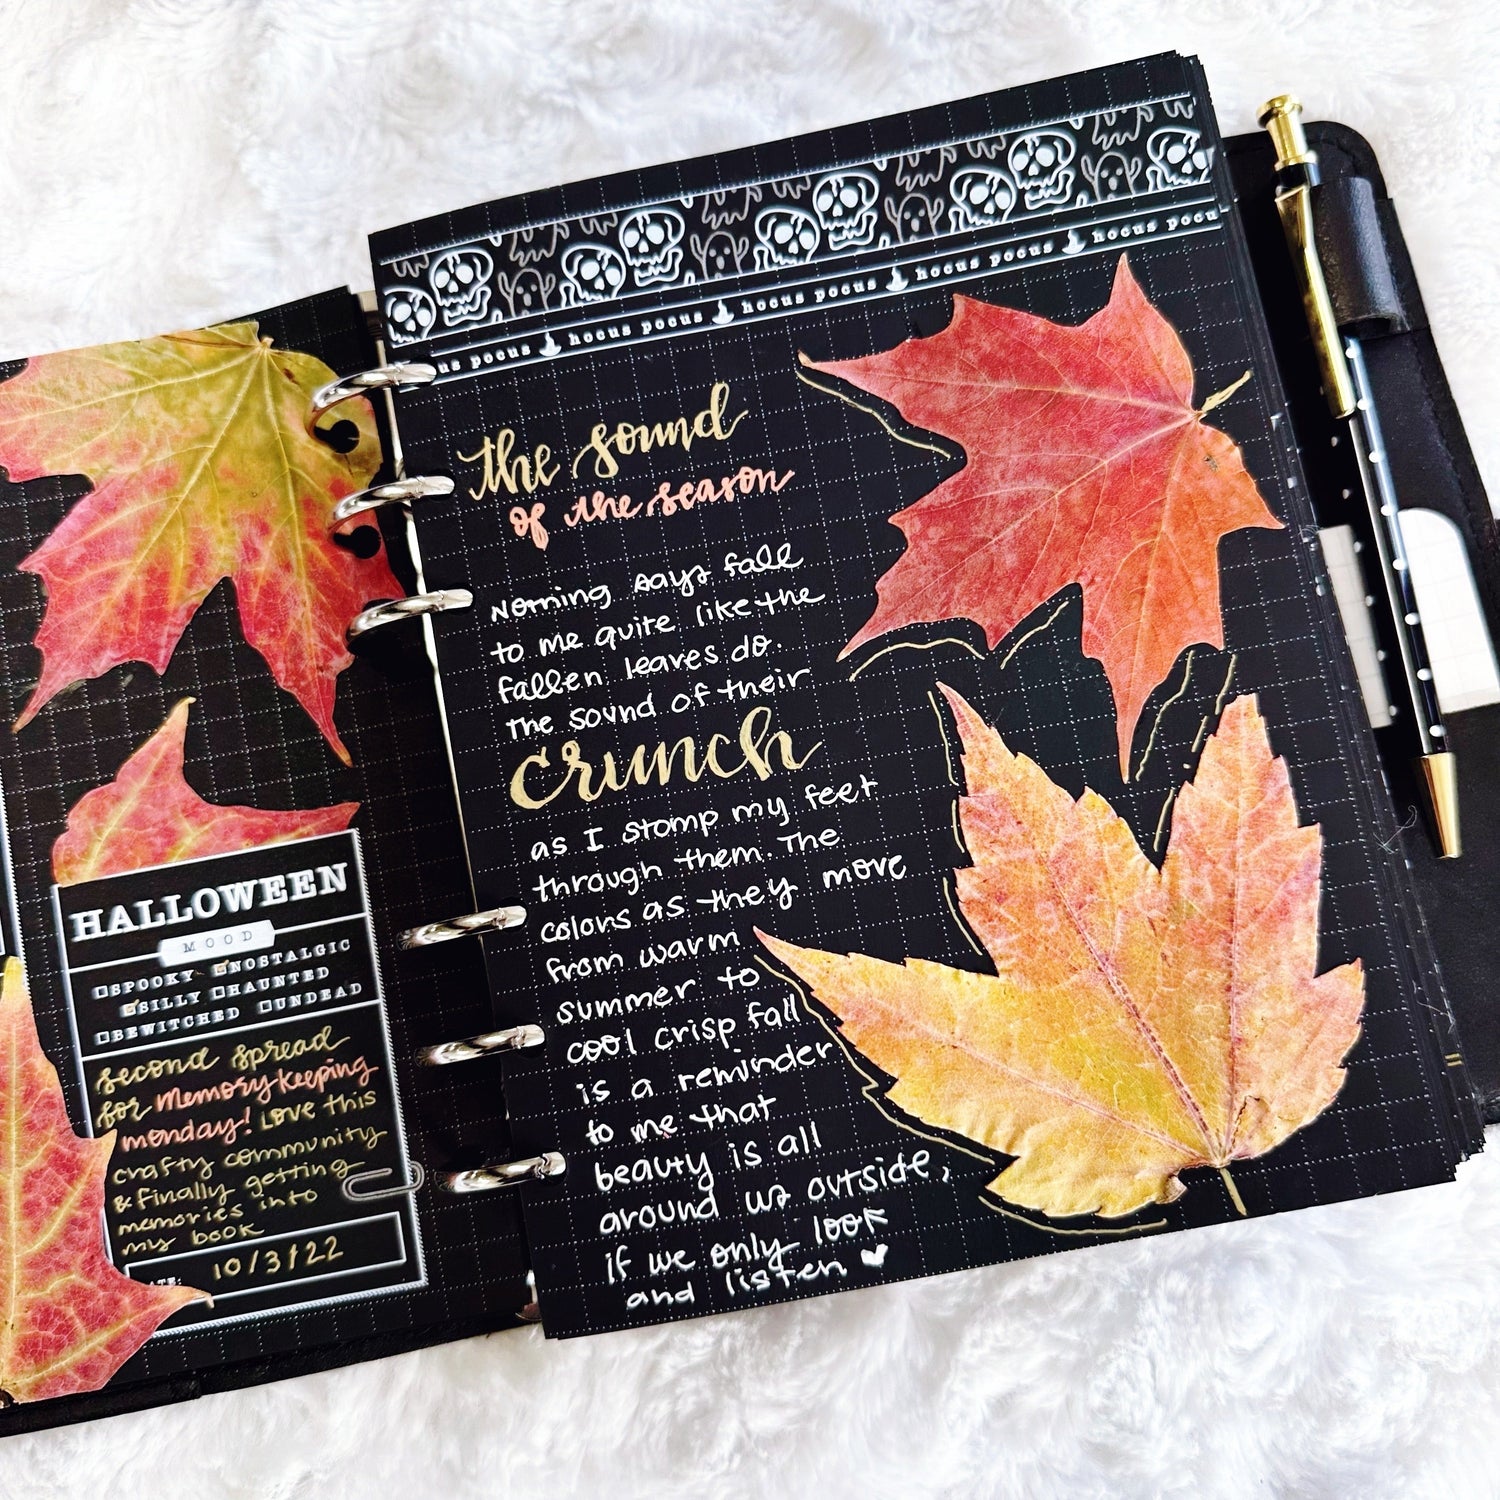 HALLOWEEN
MOOD
SPOOKY NOSTALGIC
SILLY HAUNTED
BEWITCHED UNDEAD
second spread
for memory keeping
monday! Love this
crafty community
& finally getting
memories into
my book
10/3/22
us pocus hocus pocus hocus pocus hocus pocus hocus pocu
the sound
of the season
Noming says fall
to me quite like the
fallen leaves do.
The sound of their
crunch
as I stomp my feet
through them. The
colors as they move
from warm
summer to
cool crisp fall
is a reminder
to me that
beauty is all
around us outside,
if we only look
and listen